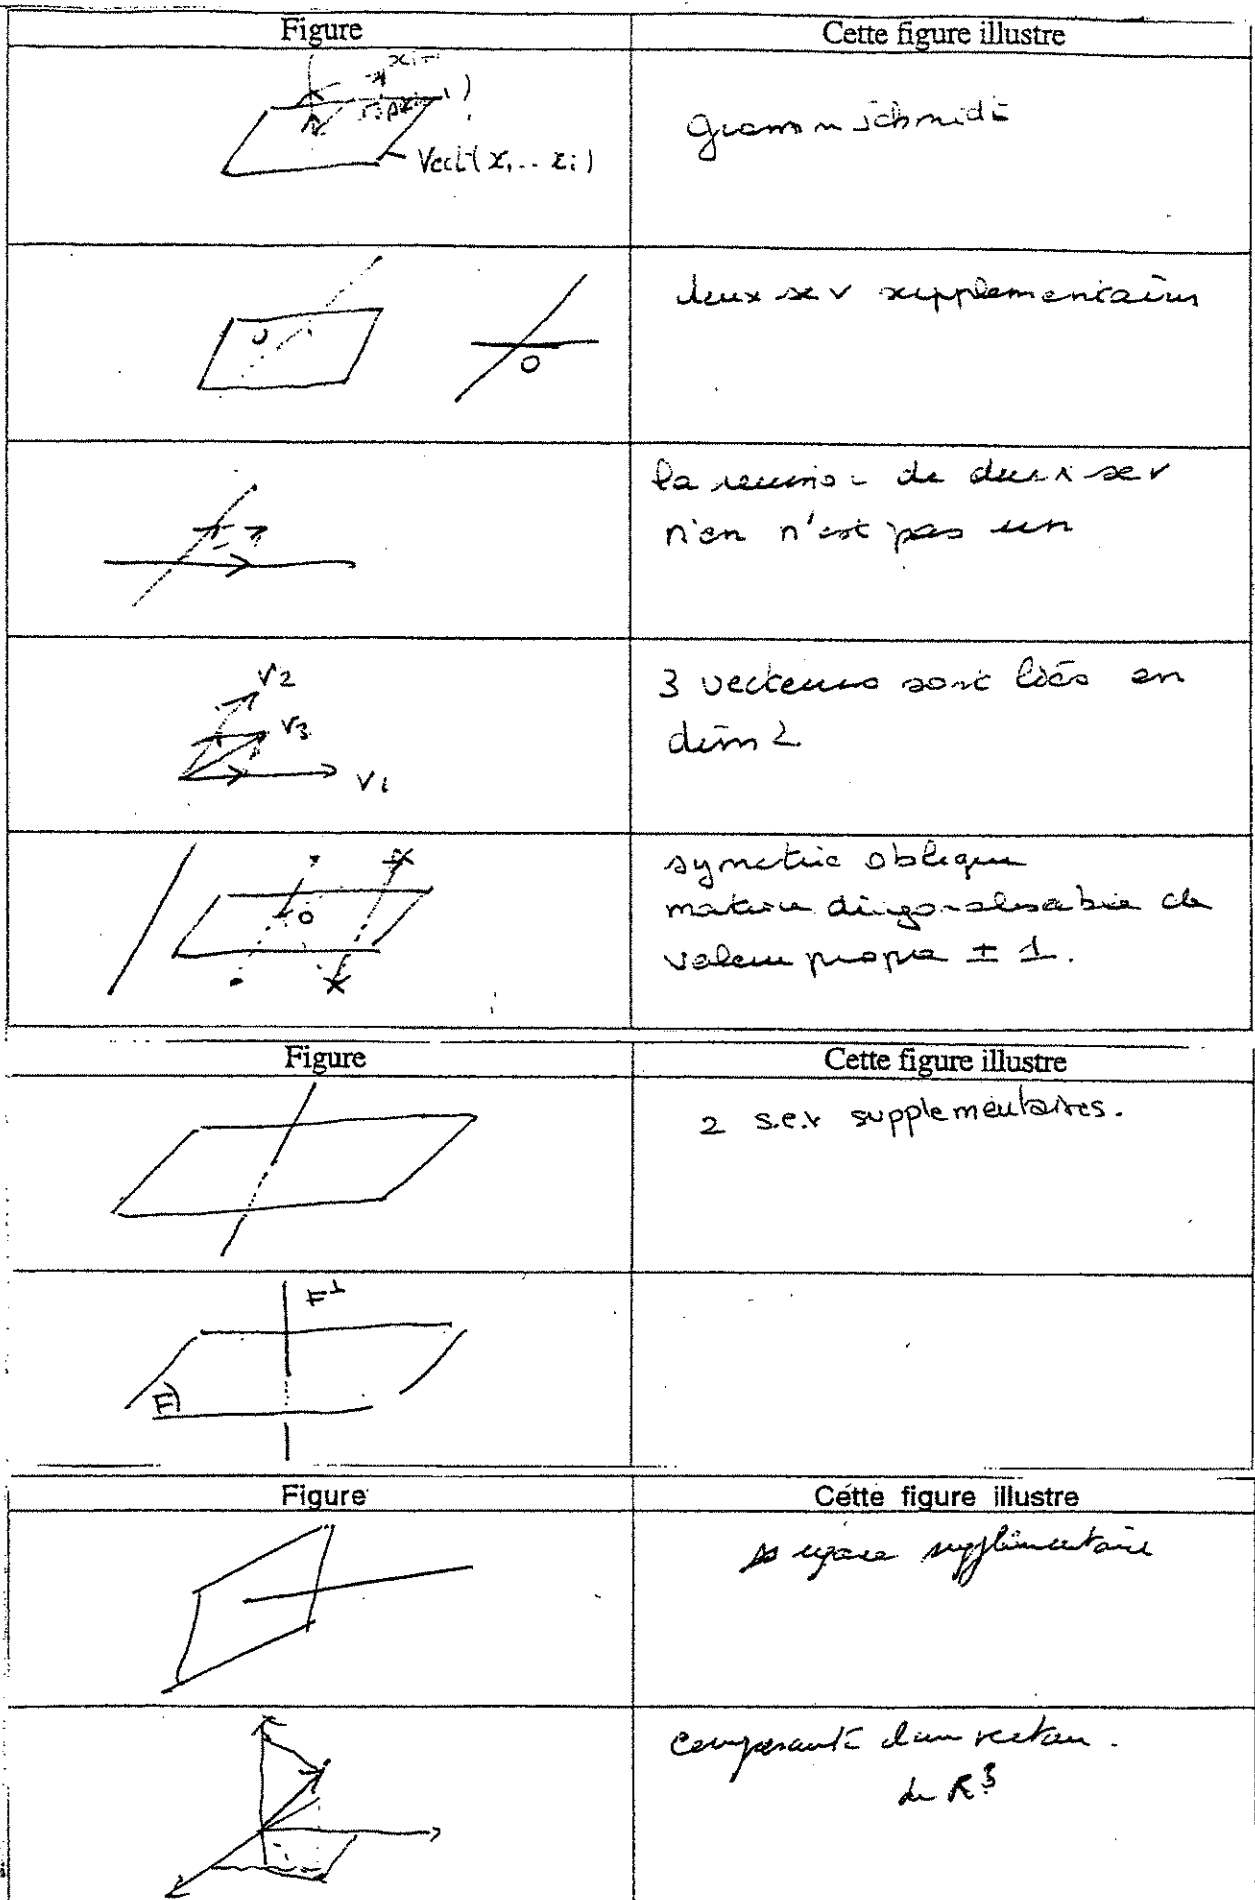 Figure
Cette figure illustre
Vect(x, .. xi)
Gramm Schmidt
O
O
deux sev supplementaires
la reunion de deux sev
n'en n'est pas un
V2
V3
V1
3 vecteurs sont liés en
dim 2
O
symetrie oblique
valeur propre ± 1.
Figure
Cette figure illustre
2 s.e.v supplementaires.
F⊥
F
Figure
Cette figure illustre
espace supplémentaire
composante d'un vecteur.
de R3